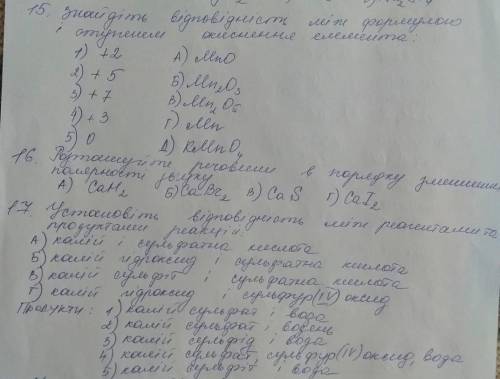 15. Знайдіть відповідність між формулою
і ступенем окиснення елемента:
1) +2 А) MnO
2) +5 Б) Mn2O3
3) +7 В) Mn2O5
4) +3 Г) Mn
5) 0 Д) KMnO4
16. Розташуйте речовини в порядку зменшення
полярності зв'язку
А) CaH2 Б) CaBr2 В) CaS Г) CaI2
17. Установіть відповідність між реагентами та
продуктами реакцій:
А) калій і сульфатна кислота
Б) калій гідроксид і сульфатна кислота
В) калій сульфіт і сульфатна кислота
Г) калій гідроксид і сульфур (IV) оксид
Продукти: 1) калій сульфат і вода
2) калій сульфат і водень
3) калій сульфід і вода
4) калій сульфат, сульфур (IV) оксид, вода
5) калій сульфіт і вода